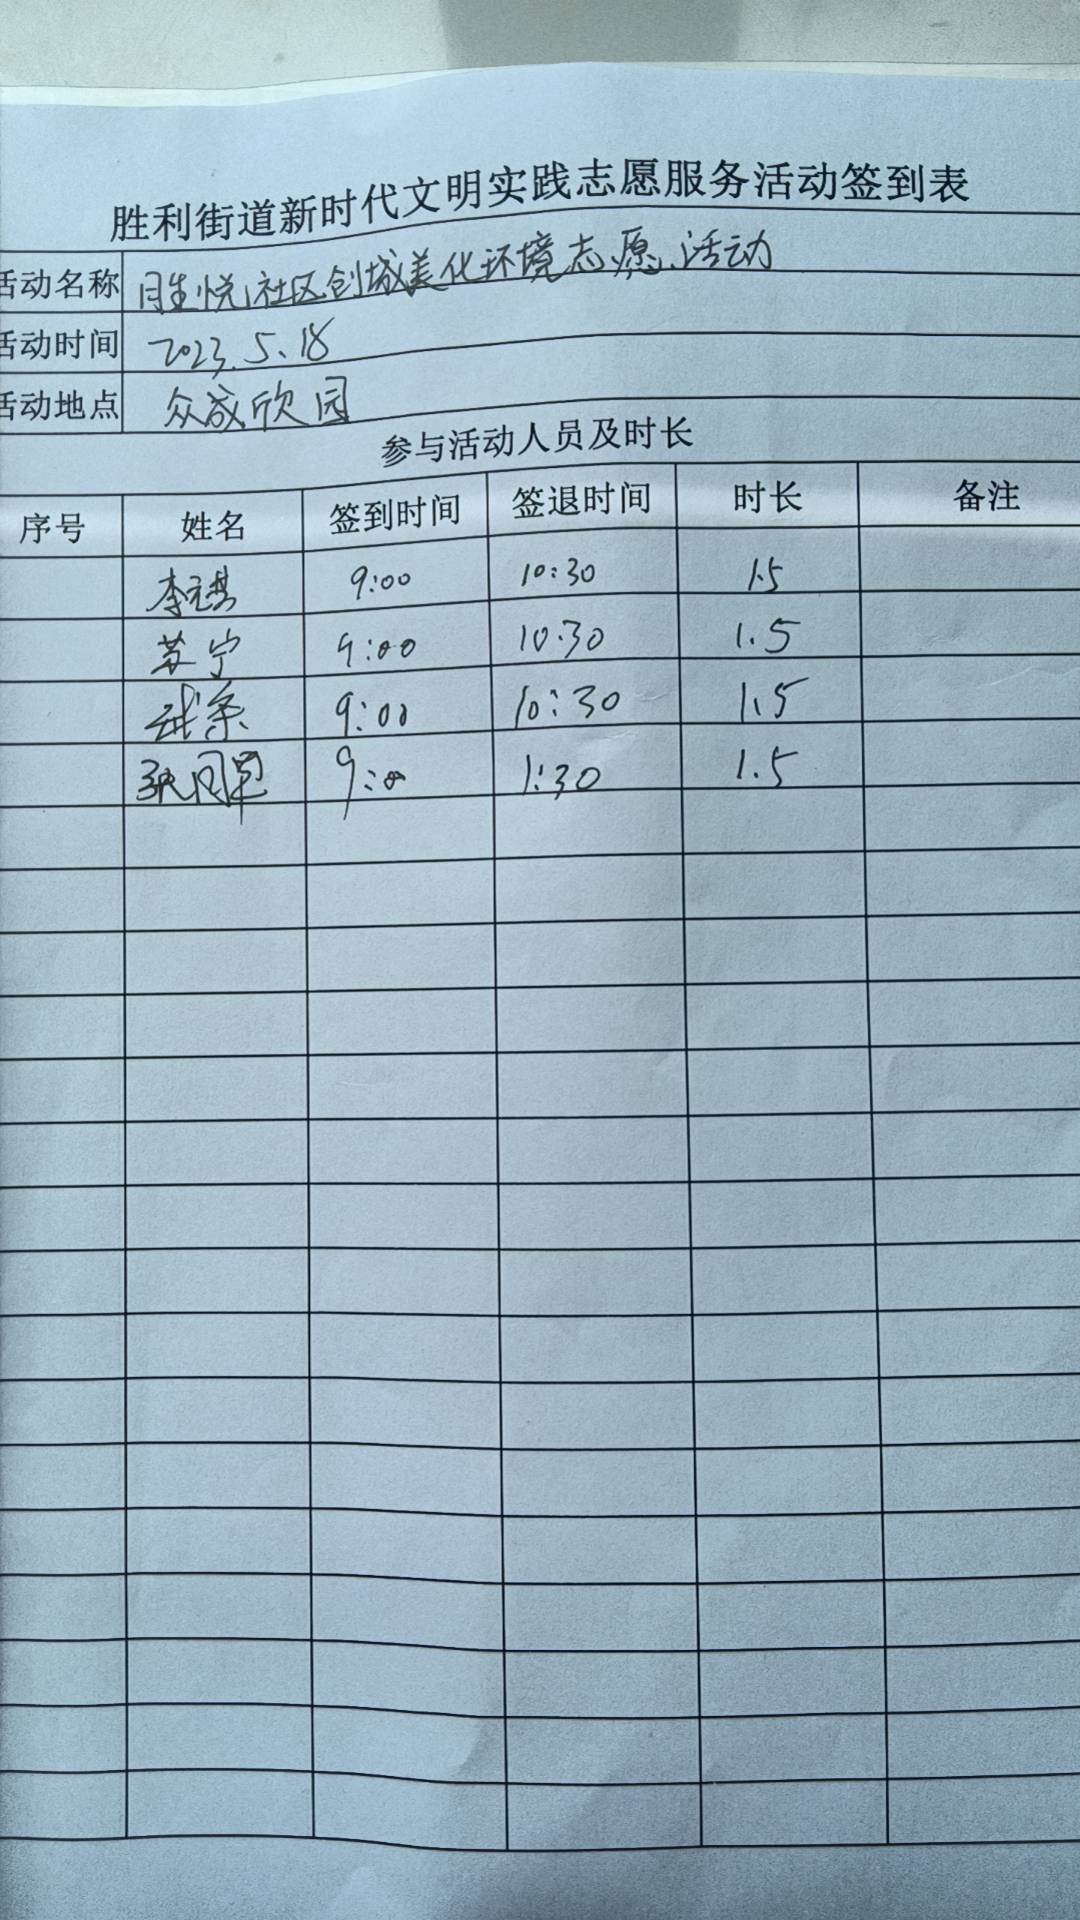 胜利街道新时代文明实践志愿服务活动签到表
活动名称 胜悦社区创城美化环境志愿活动
活动时间 2023.5.18
活动地点 众成欣园
参与活动人员及时长
序号 姓名 签到时间 签退时间 时长 备注
李元琪 9:00 10:30 1.5
苏宁 9:00 10:30 1.5
9:00 10:30 1.5
1:30 1.5